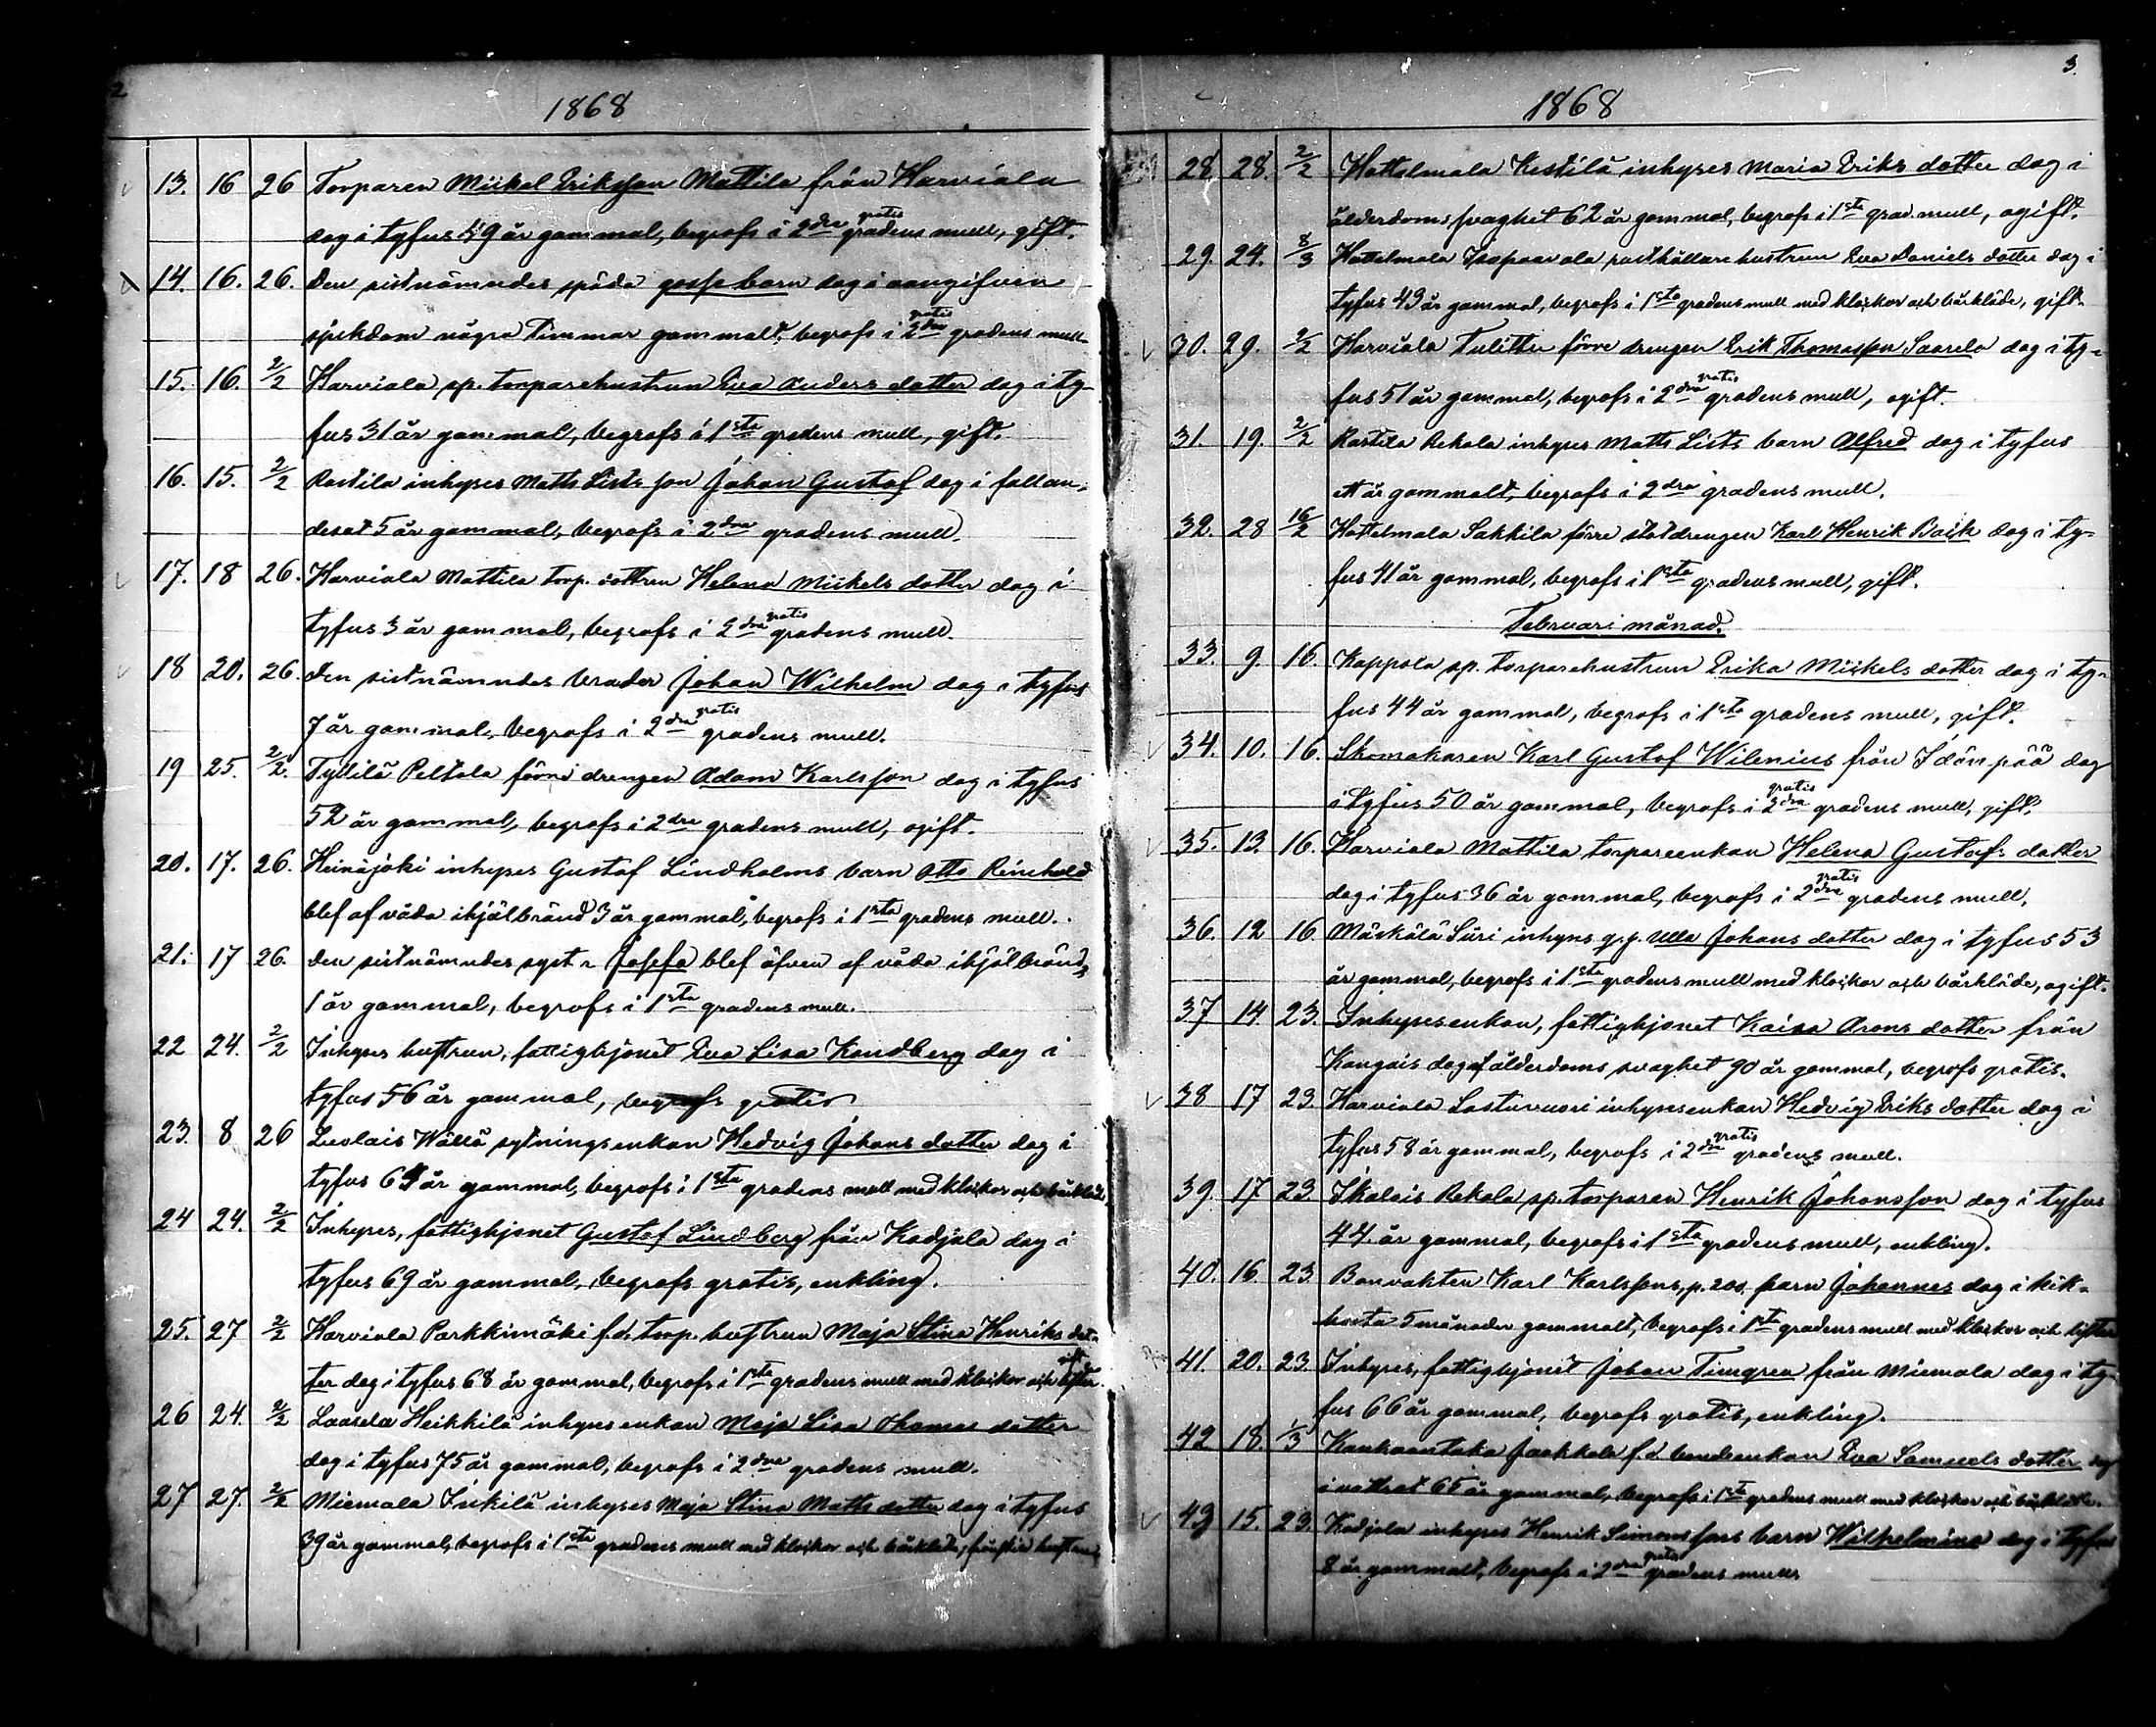 2
1868
13. 16 26 Torparen Mickel Eriksson Mattila från Harviala
dog i tyfus 49 år gammal, begrofs i 2dra gratis gradens mull, gift.
14. 16. 26. Den sistnämndes späda gossebarn dog i oangifven
sjukdom några Timmar gammalt, begrofs i 2dra gratis gradens mull
15. 16. 2/2 Harviala sp. torparehustrun Eva Anders dotter dog i ty-
fus 31 år gammal, begrofs i 1sta gradens mull, gift.
16. 15. 2/2 Rastila inhyses Matts Lists son Johan Gustaf dog i fallan-
desot 5 år gammal, begrofs i 2dra gradens mull.
17. 18 26. Harviala Mattila torp. dottren Helena Mickels dotter dog i
tyfus 3 år gammal, begrofs i 2dra gratis gradens mull.
18 20. 26. Den sistnämndes broder Johan Wilhelm dog i tyfus
7 år gammal, begrofs i 2dra gratis gradens mull.
19 25. 2/2. Tydilä Peltola förre drengen Adam Karlsson dog i tyfus
52 år gammal, begrofs i 2dra gradens mull, ogift.
20. 17. 26. Heinäjoki inhyses Gustaf Lindholms barn Otto Reinhold
blef af våda ihjälbränd 3 år gammal, begrofs i 1sta gradens mull.
21. 17 26. Den sistnämndes syst r Josefa blef äfven af våda ihjälbränd,
1 år gammal, begrofs i 1sta gradens mull.
22 24. 2/2 Inhyses hustrun, fattighjonet Eva Lisa Kandberg dog i
tyfus 56 år gammal, begrofs gratis
23. 8 26 Luolais Wällä sytningsenkan Hedvig Johans dotter dog i
tyfus 69 år gammal, begrofs i 1sta gradens mull med klockor och bårkläde
24 24. 2/2 Inhyses, fattighjonet Gustaf Lindberg från Kadjala dog i
tyfus 69 år gammal, begrofs gratis, enkling.
25. 27 2/2 Harviala Parkkimäki f.d. torp. hustrun Maja Stina Henriks dot-
ter dog i tyfus 68 år gammal, begrofs i 1sta gradens mull med klockor och lyftor. gift
26 24. 2/2 Laurela Heikkilä inhyses enkan Maja Lisa Thomas dotter
dog i tyfus 75 år gammal, begrofs i 2dra gradens mull.
27 27. 2/2 Miemala Inkilä inhyses Maja Stina Matts dotter dog i tyfus
39 år gammal, begrofs i 1sta gradens mull med klockor och bårkläde,
3.
1868
28 28. 2/2 Hattelmala Kestilä inhyses Maria Eriks dotter dog i
ålderdomssvaghet 62 år gammal, begrofs i 1sta grad. mull, ogift.
29. 24. 8/3 Hattelmala Isopaavola rusthållarehustrun Eva Daniels dotter dog i
tyfus 43 år gammal, begrofs i 1sta gradens mull med klockor och bårkläde, gift
30. 29. 2/2 Harviala Tulitter förre drengen Erik Thomasson Saarela dog i ty-
fus 51 år gammal, begrofs i 2dra gratis gradens mull, ogift.
31. 19. 2/2 Rastila Rekola inhyses Matts Lists barn Alfred dog i tyfus
ett år gammalt, begrofs i 2dra gradens mull.
32. 28 16/2 Hattelmala Sakkila förre statdrengen Karl Henrik Back dog i ty-
fus 41 år gammal, begrofs i 1sta gradens mull, gift.
Februari månad.
33. 9 16. Kappola sp. torparehustrun Erika Mickels dotter dog i ty-
fus 44 år gammal, begrofs i 1sta gradens mull, gift.
34. 10. 16. Skomakaren Karl Gustaf Wilenius från Idänpää dog
i tyfus 50 år gammal, begrofs i 2dra gratis gradens mull, gift.
35. 13. 16. Harviala Mattila torpareenkan Helena Gustafs dotter
dog i tyfus 36 år gammal, begrofs i 2dra gratis gradens mull,
36. 12 16 Mäskälä Siiri inhyses q.p. Ulla Johans dotter dog i tyfus 53
år gammal, begrofs i 1sta gradens mull med klockor och bårkläde, ogift.
37 14 23. Inhysesenkan, fattighjonet Kaisa Arons dotter från
Kangais dog af ålderdoms svaghet 90 år gammal, begrofs gratis.
38 17 23. Harviala Lastuvuori inhysesenkan Hedvig Eriks dotter dog i
tyfus 58 år gammal, begrofs i 2dra gratis gradens mull.
39. 17 23 Ikalais Rekola sp. torparen Henrik Johansson dog i tyfus
44 år gammal, begrofs i 1sta gradens mull, enkling.
40. 16 23. Banvakten Karl Karlssons, p. 200. barn Johannes dog i kik-
hosta 5 månader gammalt, begrofs i 1sta gradens mull med klockor och lyftor
41. 20. 23. Inhyses, fattighjonet Johan Timgren från Miemala dog i ty-
fus 66 år gammal, begrofs gratis, enkling.
42 18. 1/3 Kankaantaka Jaakkola f.d. bondeenkan Eva Samuels dotter dog
i vattsot 65 år gammal, begrofs i 1sta gradens mull med klockor och bårkläde.
43 15. 23. Kadjala inhyses Henrik Simonssons barn Wilhelmina dog i tyfus
8 år gammalt, begrofs i 2dra gratis gradens mull